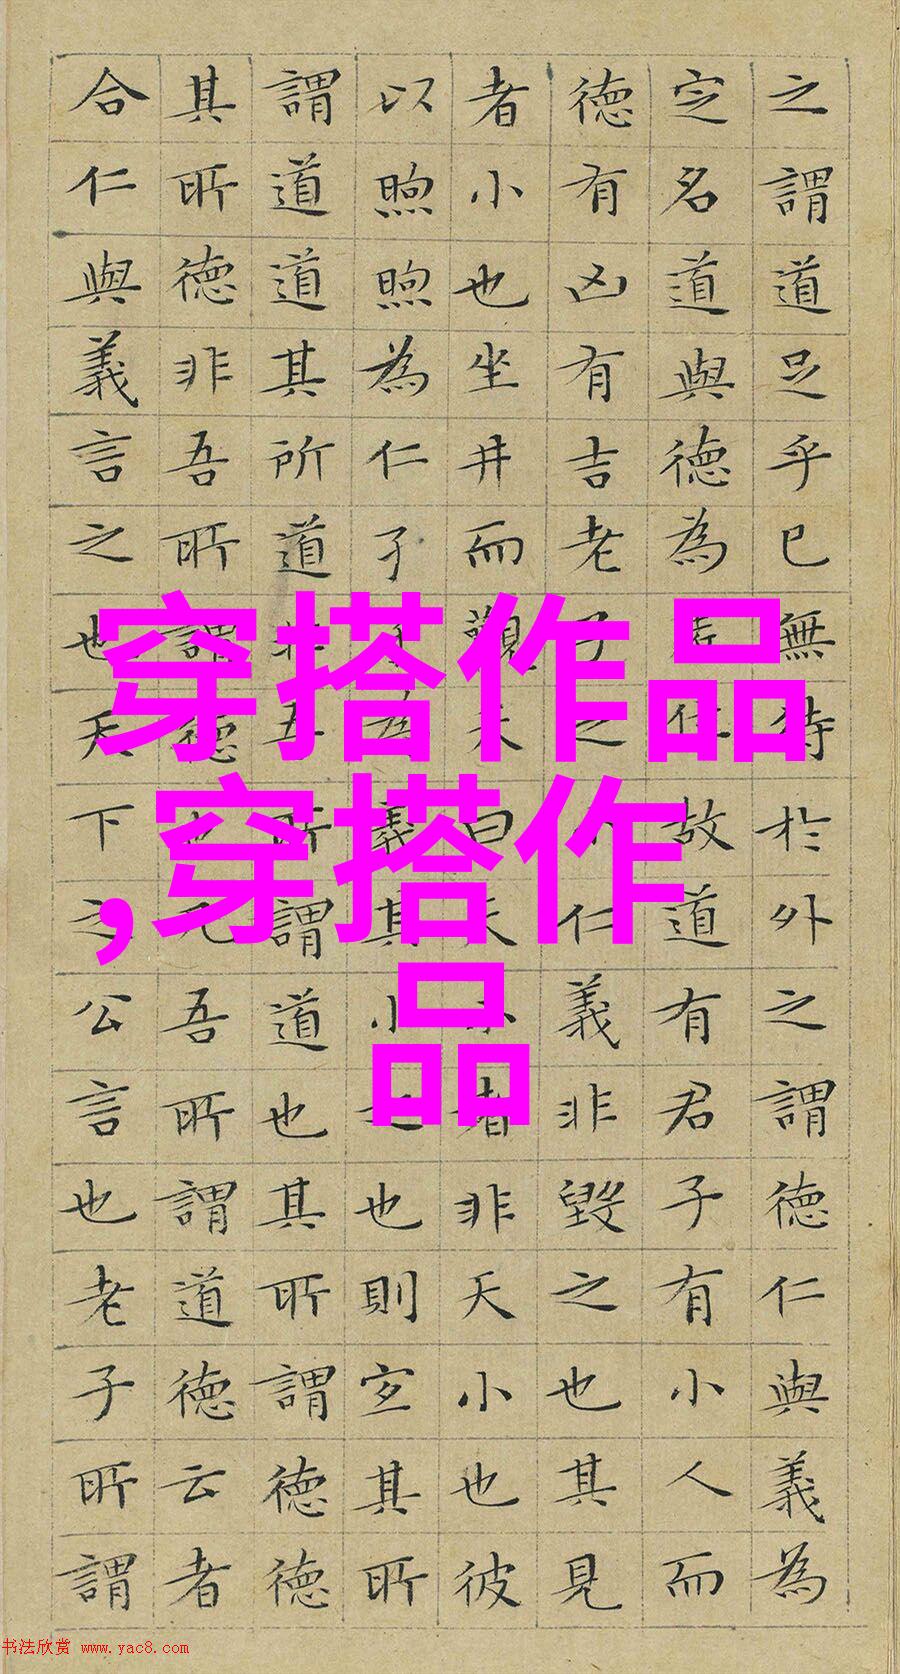 之謂道足乎已無待於外之謂德仁與義為
定名道與德為位故道有君子有小人而
德有凶有吉老子之仁義非毀之也其見
者小也坐井而觀天曰天小者非天小也彼
以煦煦為仁孑孑為義其小之也則宜其所
謂道道其所道非吾所謂道也其所謂德德
其所德非吾所謂德也凡吾所謂道德云者
合仁與義言之也天下之公言也老子所謂
穿搭作品
,穿搭作
品
书法欣赏 www.yac8.com